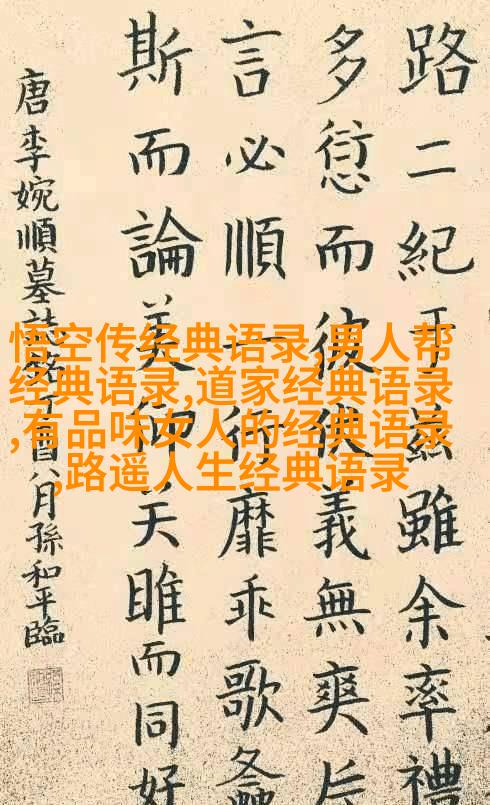 路二紀于茲雖余率禮
多愆而彼義無爽
言必順一行靡乖歌螽
斯而論美仰关雎而同好
唐李婉順墓誌銘丁酉八月孫和平臨
悟空传经典语录,男人帮
经典语录,道家经典语录
,有品味女人的经典语录
,路遥人生经典语录